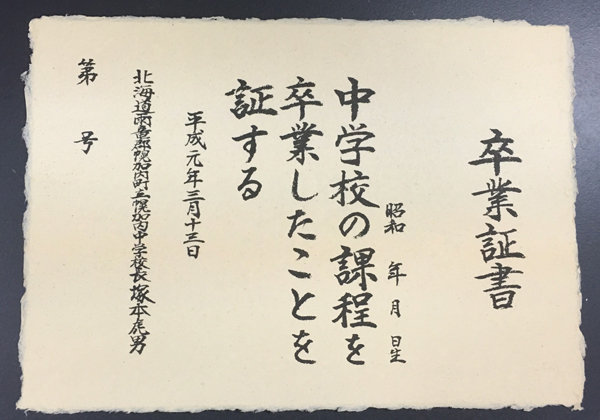 卒業証書
昭和　年　月　日生
中学校の課程を
卒業したことを
証する
平成元年三月十三日
北海道雨竜郡幌加内町立幌加内中学校長　塚本虎男
第　号